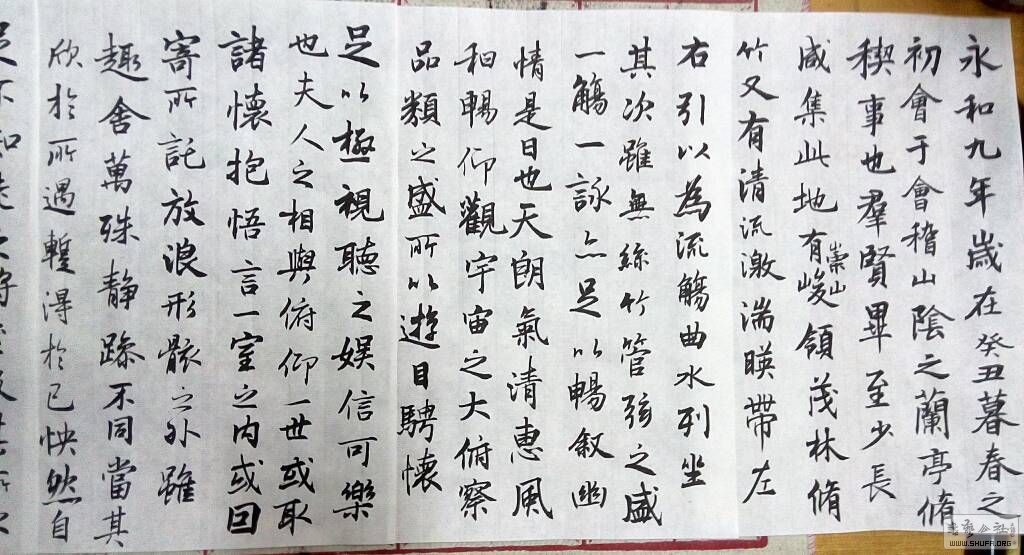 永和九年歲在癸丑暮春之
初會于會稽山陰之蘭亭脩
稧事也羣賢畢至少長
咸集此地有崇山峻領茂林脩
竹又有清流激湍暎帶左
右引以為流觴曲水列坐
其次雖無絲竹管弦之盛
一觴一詠亦足以暢敘幽
情是日也天朗氣清惠風
和暢仰觀宇宙之大俯察
品類之盛所以遊目騁懷
足以極視聽之娛信可樂
也夫人之相與俯仰一世或取
諸懷抱悟言一室之內或因
寄所託放浪形骸之外雖
趣舍萬殊靜躁不同當其
欣於所遇蹔得於己怏然自
足不知
WWW.SHUFA.ORG